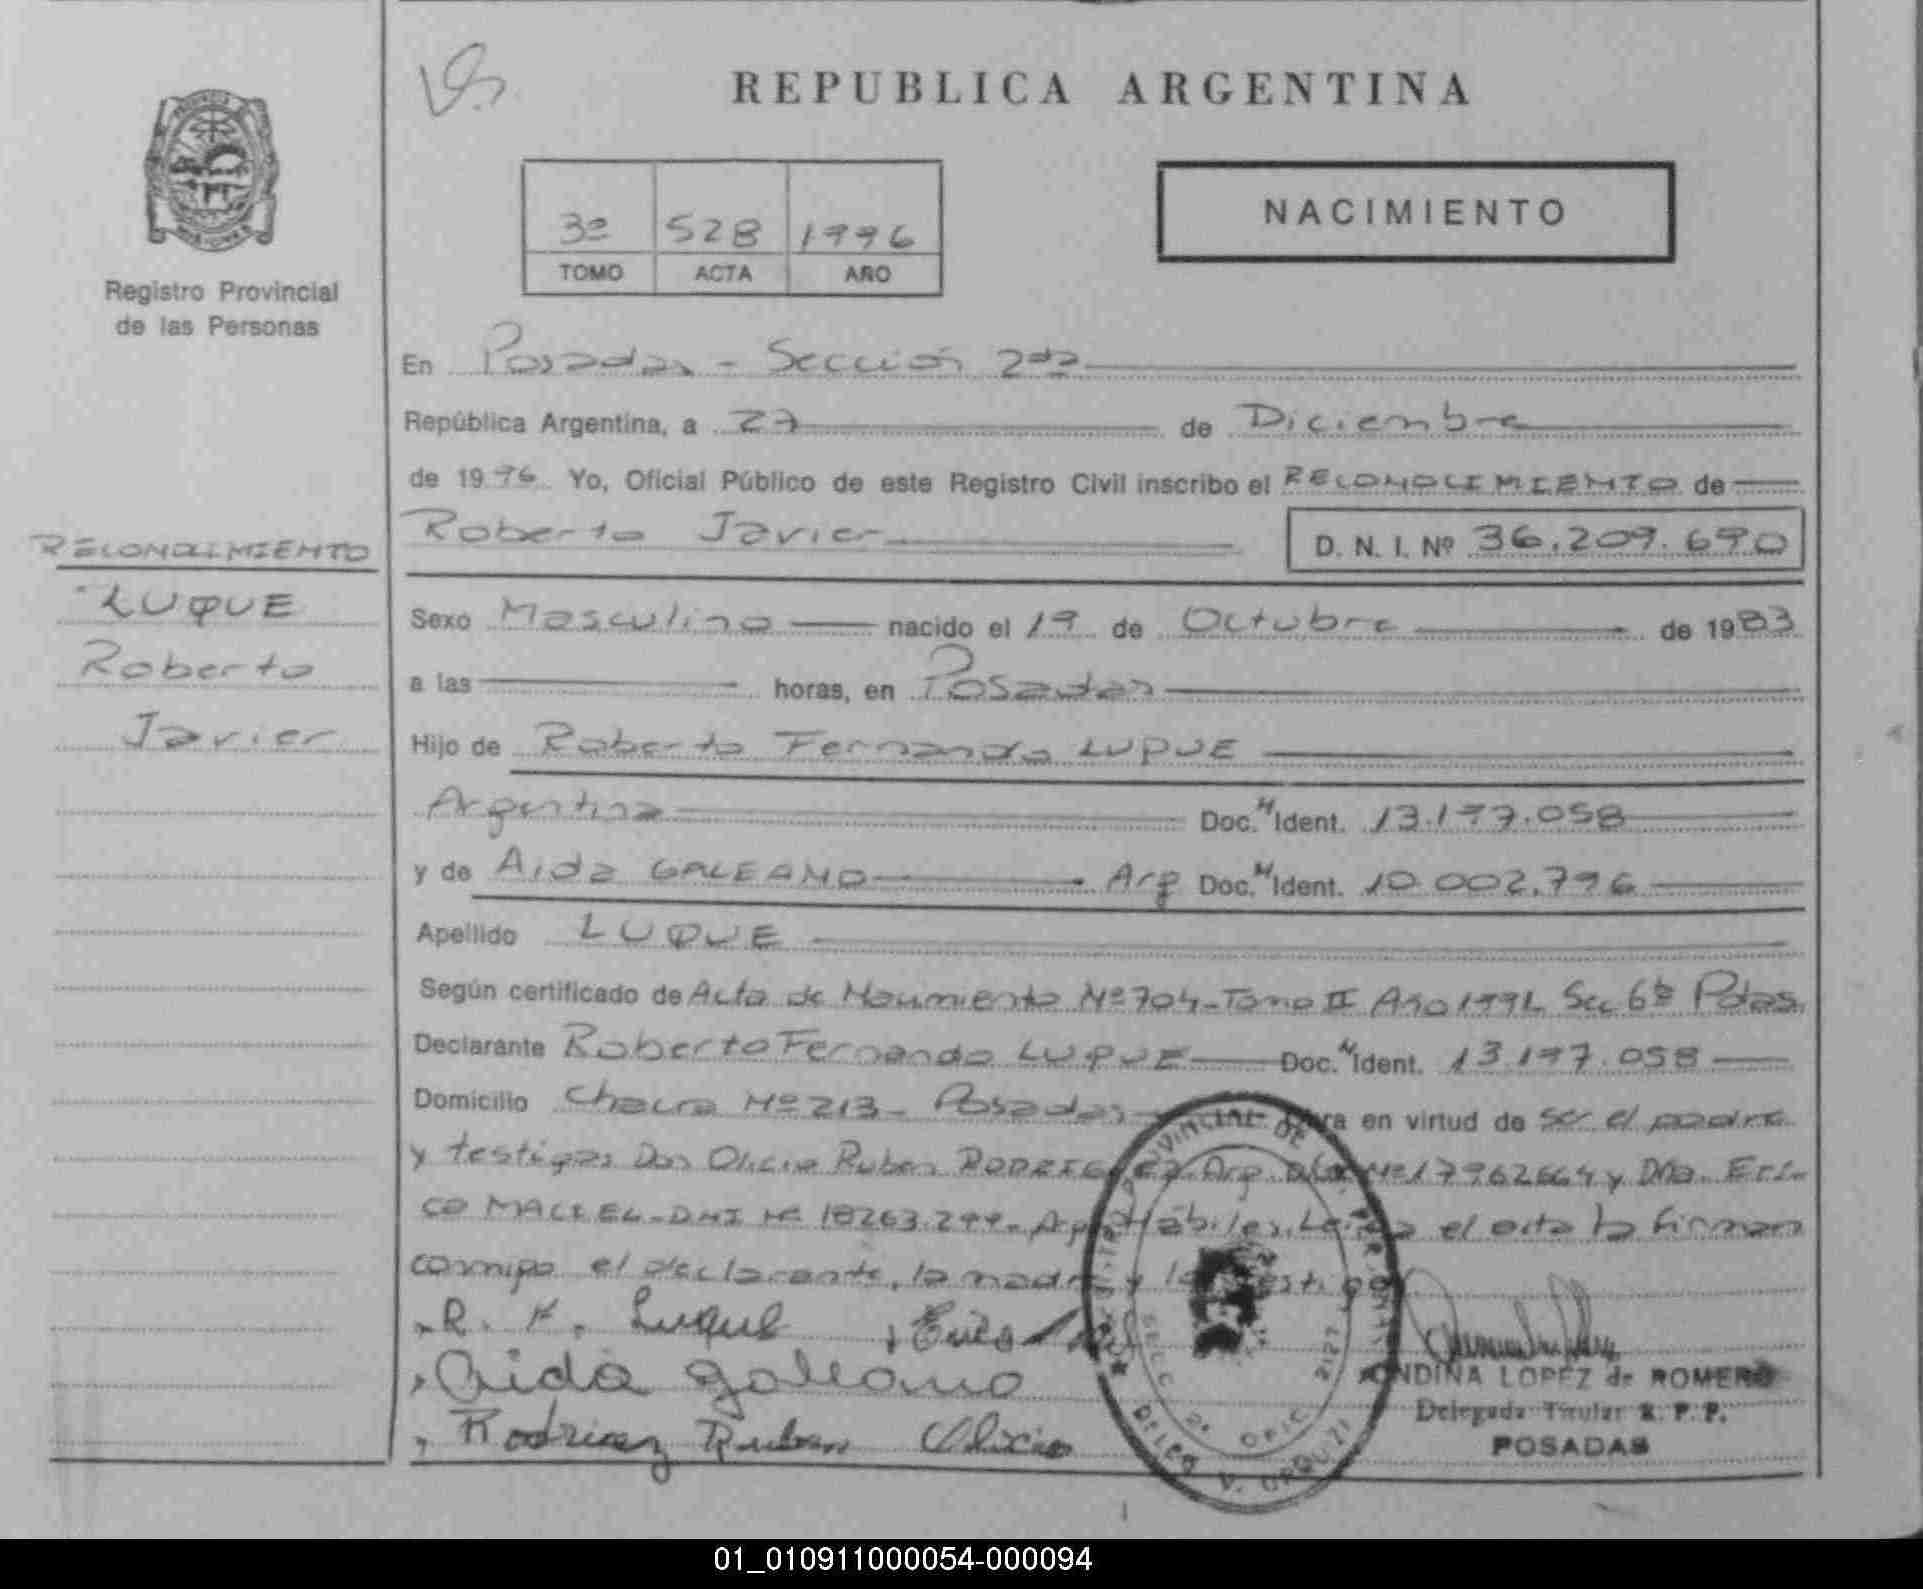 REPUBLICA ARGENTINA
NACIMIENTO
3º 528 1996
TOMO ACTA AÑO
Registro Provincial
de las Personas
En Posadas - Sección 2da
República Argentina, a 27 de Diciembre
de 1996 Yo, Oficial Público de este Registro Civil inscribo el RECONOCIMIENTO de
Roberto Javier D. N. I. Nº 36.209.690
RECONOCIMIENTO
LUQUE
Roberto
Javier
Sexo Masculino nacido el 19 de Octubre de 1983
a las horas, en Posadas
Hijo de Roberto Fernando LUQUE
Argentina Doc. N Ident. 13.197.058
y de Aida GALEANO Arg Doc. N Ident. 10.002.796
Apellido LUQUE
Según certificado de Acta de Nacimiento Nº 704 - Tomo II Año 1992 Sec 6ta Pdas.
Declarante Roberto Fernando LUQUE Doc. N Ident. 13.197.058
Domicilio Chacra Nº 213 - Posadas en virtud de ser el padre
y testigos Don Olicio Ruben RODRIGUEZ - Arg. DNI Nº 17962664 y Dña. Eri-
ca MACIEL - DNI Nº 18263.299 - Arg. Hábiles. Leída el acta la firman
conmigo el declarante, la madre y los testigos
R. F. Luque Erica
Aida galeano
Rodriguez Ruben Olicio
ONDINA LOPEZ de ROMERO
Delegada Titular R. P. P.
POSADAS
01_010911000054-000094